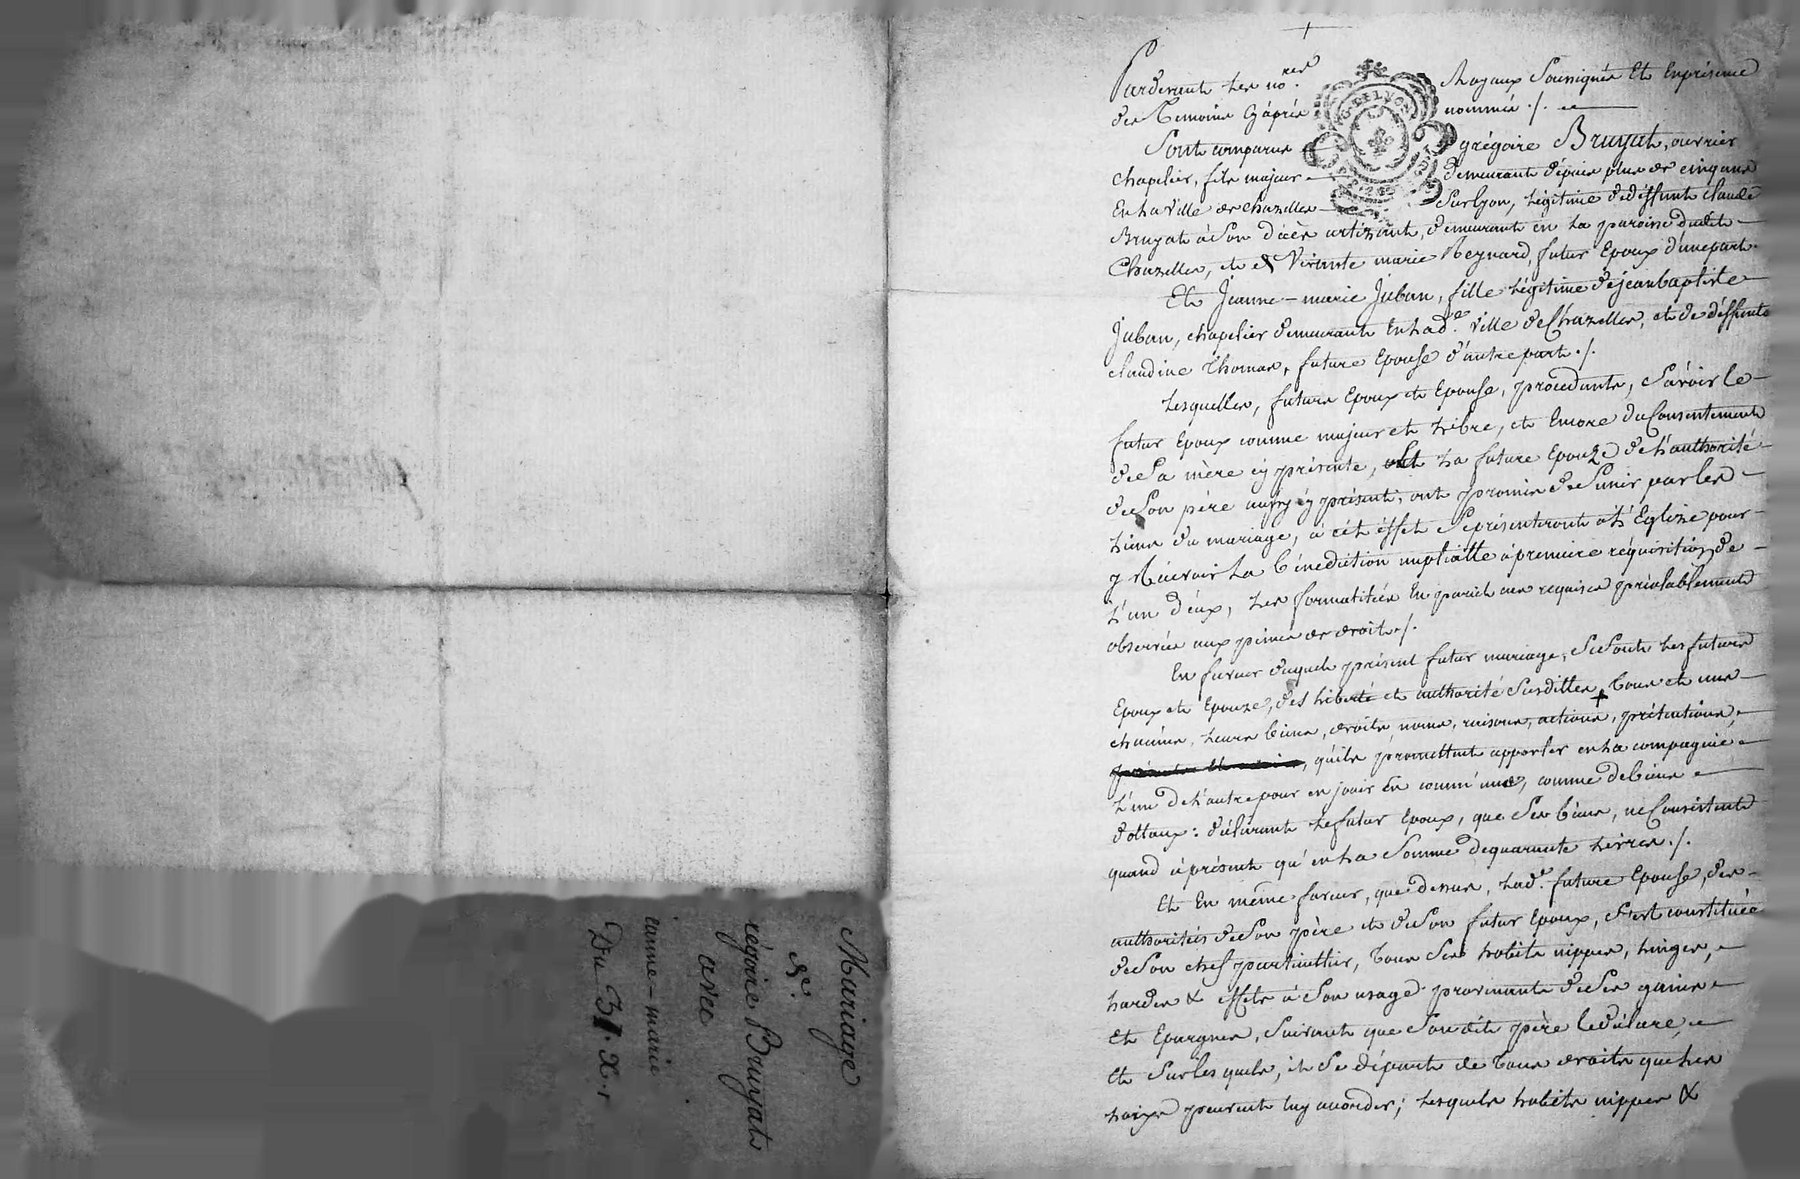 Pardevant les no.res Royaux Soussignés Et Enprésence
des Temoins Cyáprès nommés ./.
Sont comparus grégoire Bruyat, ouvrier
chapelier, fils majeur demeurant dépuis plus de cinq ans
En La Ville de Chazelles Sur Lyon, Légitime de déffunt claude
Bruyat à Son décès artizant, demeurant en La paroisse dudit
Chazelles, et de Vivante marie Reynard, futur Epoux d'une part.
Et Jeanne-marie Juban, fille Légitime de jean baptiste
Juban, chapelier demeurant En Lad.e Ville de Chazelles, et de déffunte
claudine Thomas, future Epouse d'autre part ./.
Lesquelles, futurs Epoux et Epouse, procedants, Sávoir Le
futur Epoux comme majeur et Libre, et Encore du Consentement
de Sa mère cy présente, et La future Epouze de L'authorité
de Son père aussy cy présent, ont promis de S'unir par les
Liens du mariage, à cét éffet Se présenteront à L'Eglize pour
y Récevoir La bénédiction nuptialle à premiere réquisition de
L'un d'éux, Les formalitées En pareil cas requises préalablement
observées aux peines de droit ./.
En faveur duquel présent futur mariage, Se Sont Les futurs
Epoux et Epouze, des Liberté et authorité Susdittes, Tous et uns
chacuns, Leurs biens, droits, noms, raisons, actions, prétentions,
quils promettent apporter en La compagnie
L'un de L'autre pour en jouir En commune, comme de biens
dottaux : déclarant Le futur Epoux, que Ses biens, ne Consistent
quand à présent qu'en La Somme de quarante Livres ./.
Et En même faveur, que dessus, Lad.e future Epouse, des
authorités de Son père et de Son futur Epoux, S'est constituée
de Son chef particullier, Tous Ses habits nippes, Linges,
hardes & effets à Son usage provenants de Ses gains
Et Epargnes, Suivant que Son dit père le déclare,
Et Sur lesquels, il Se départ de Tous droits que Les
Loix peuvent Luy accorder ; Lesquels habits nippes &
Mariage
de
régoire Bruyat
avec
eanne-marie
Du 31. X.r